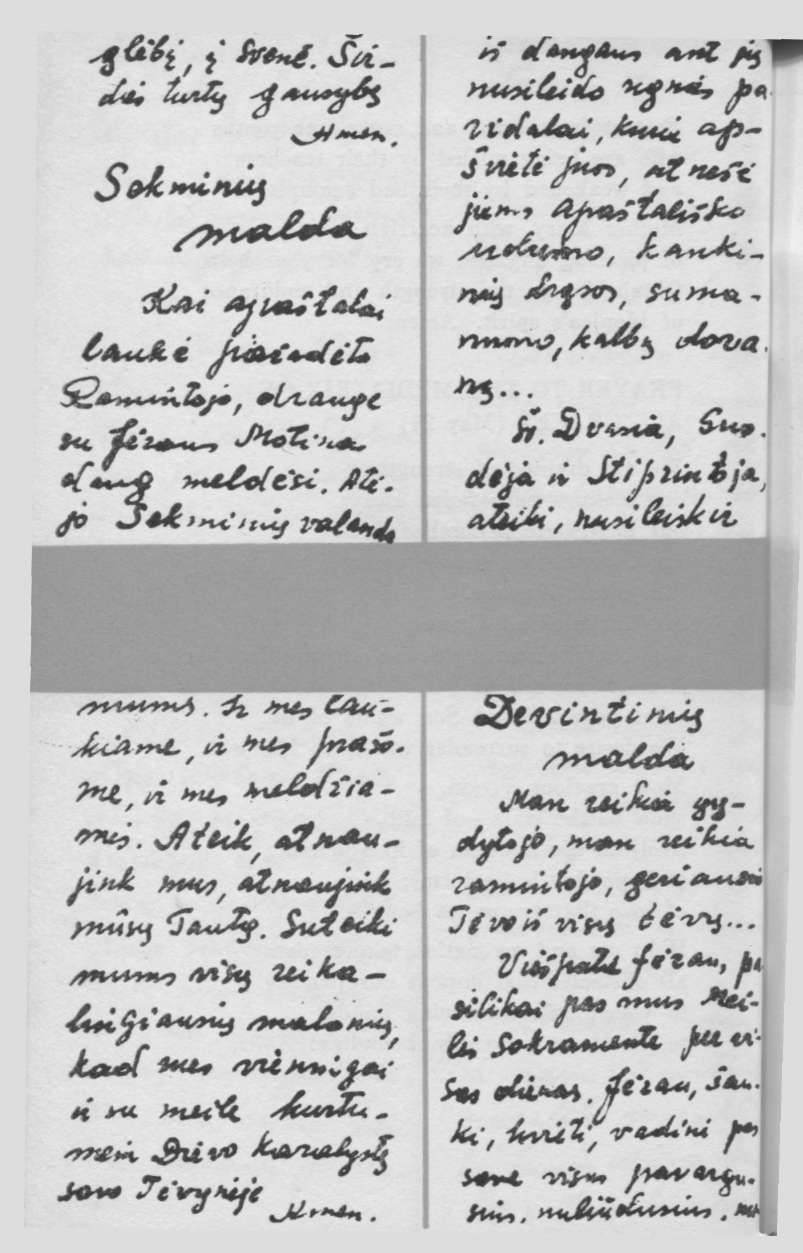 glėbį, į Švenč. Šir-
dies turtų gausybę
Amen.
Sekminių
malda
Kai apaštalai
laukė pažadėto
Ramintojo, drauge
su Jėzaus Motina
daug meldėsi. Atė-
jo Sekminių valanda
iš dangaus ant jų
nusileido ugnies pa
vidalai, kurie ap-
švietė juos, atnešė
jiems apaštališko
uolumo, kanki-
nių drąsos, suma-
numo, kalbų dova
nų...
Šv. Dvasia, Guo-
dėja ir Stiprintoja,
ateiki, nusileisk ir
mums. Ir mes lau-
kiame, ir mes prašo-
me, ir mes meldžia-
mės. Ateik, atnau-
jink mus, atnaujink
mūsų Tautą. Suteiki
mums visų reika-
lingiausių malonių,
kad mes vieningai
ir su meile kurtu-
mėm Dievo Karalystę
savo Tėvynėje
Amen.
Devintinių
malda
Man reikia gy-
dytojo, man reikia
ramintojo, geriausio
Tėvo iš visų tėvų...
Viešpatie Jėzau, pa
silikai pas mus Mei-
lės Sakramente per vi-
sas dienas. Jėzau, šau-
ki, kvieti, vadini pas
save visus pavargu-
sius, nuliūdusius,